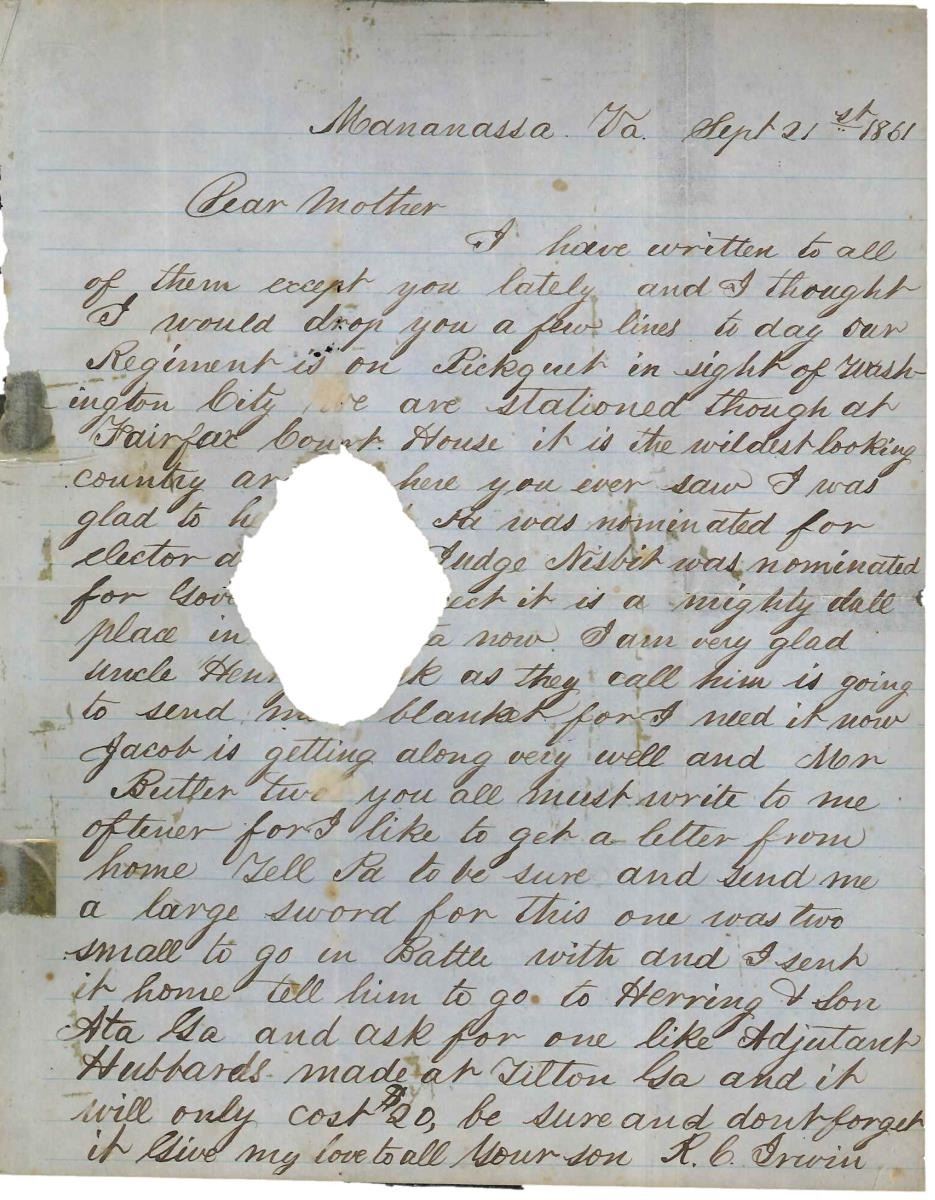 Mananassa. Va. Sept 21st 1861
Dear Mother
I have written to all
of them except you lately and I thought
I would drop you a few lines to day our
Regiment is on Pickquet in sight of Wash-
ington City we are stationed though at
Fairfax Court House it is the wildest looking
country ar here you ever saw I was
glad to h Pa was nominated for
elector a Judge Nisbit was nominated
for Gov ect it is a mighty dall
place in a now I am very glad
uncle Hen k as they call him is going
to send m blanket for I need it now
Jacob is getting along very well and Mr
Butler two you all must write to me
oftener for I like to get a letter from
home Tell Pa to be sure and send me
a large sword for this one was two
small to go in Battle with and I sent
it home tell him to go to Herring & Son
Ata Ga and ask for one like Adjutant
Hubbards made at Tilton Ga and it
will only cost $20, be sure and dont forget
it Give my love to all Your son R. C. Irwin